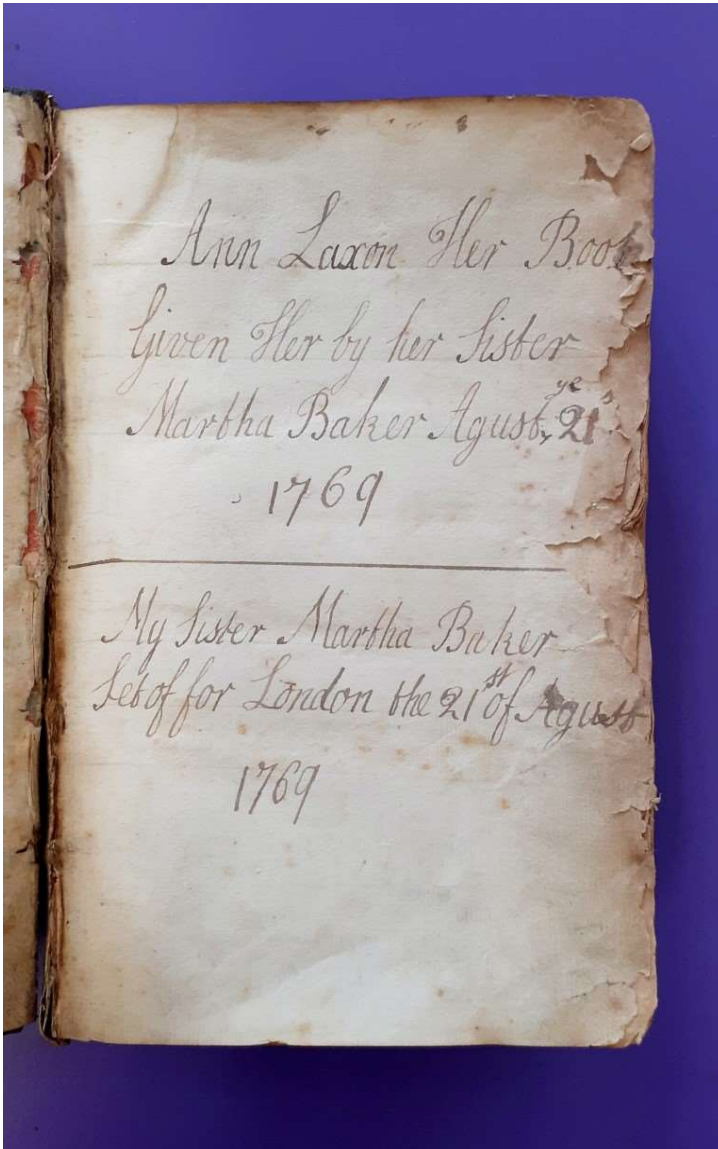 Ann Laxon Her Book
Given Her by her Sister
Martha Baker Agust, ye 21
1769
My Sister Martha Baker
Set of for London the 21st of Agust
1769